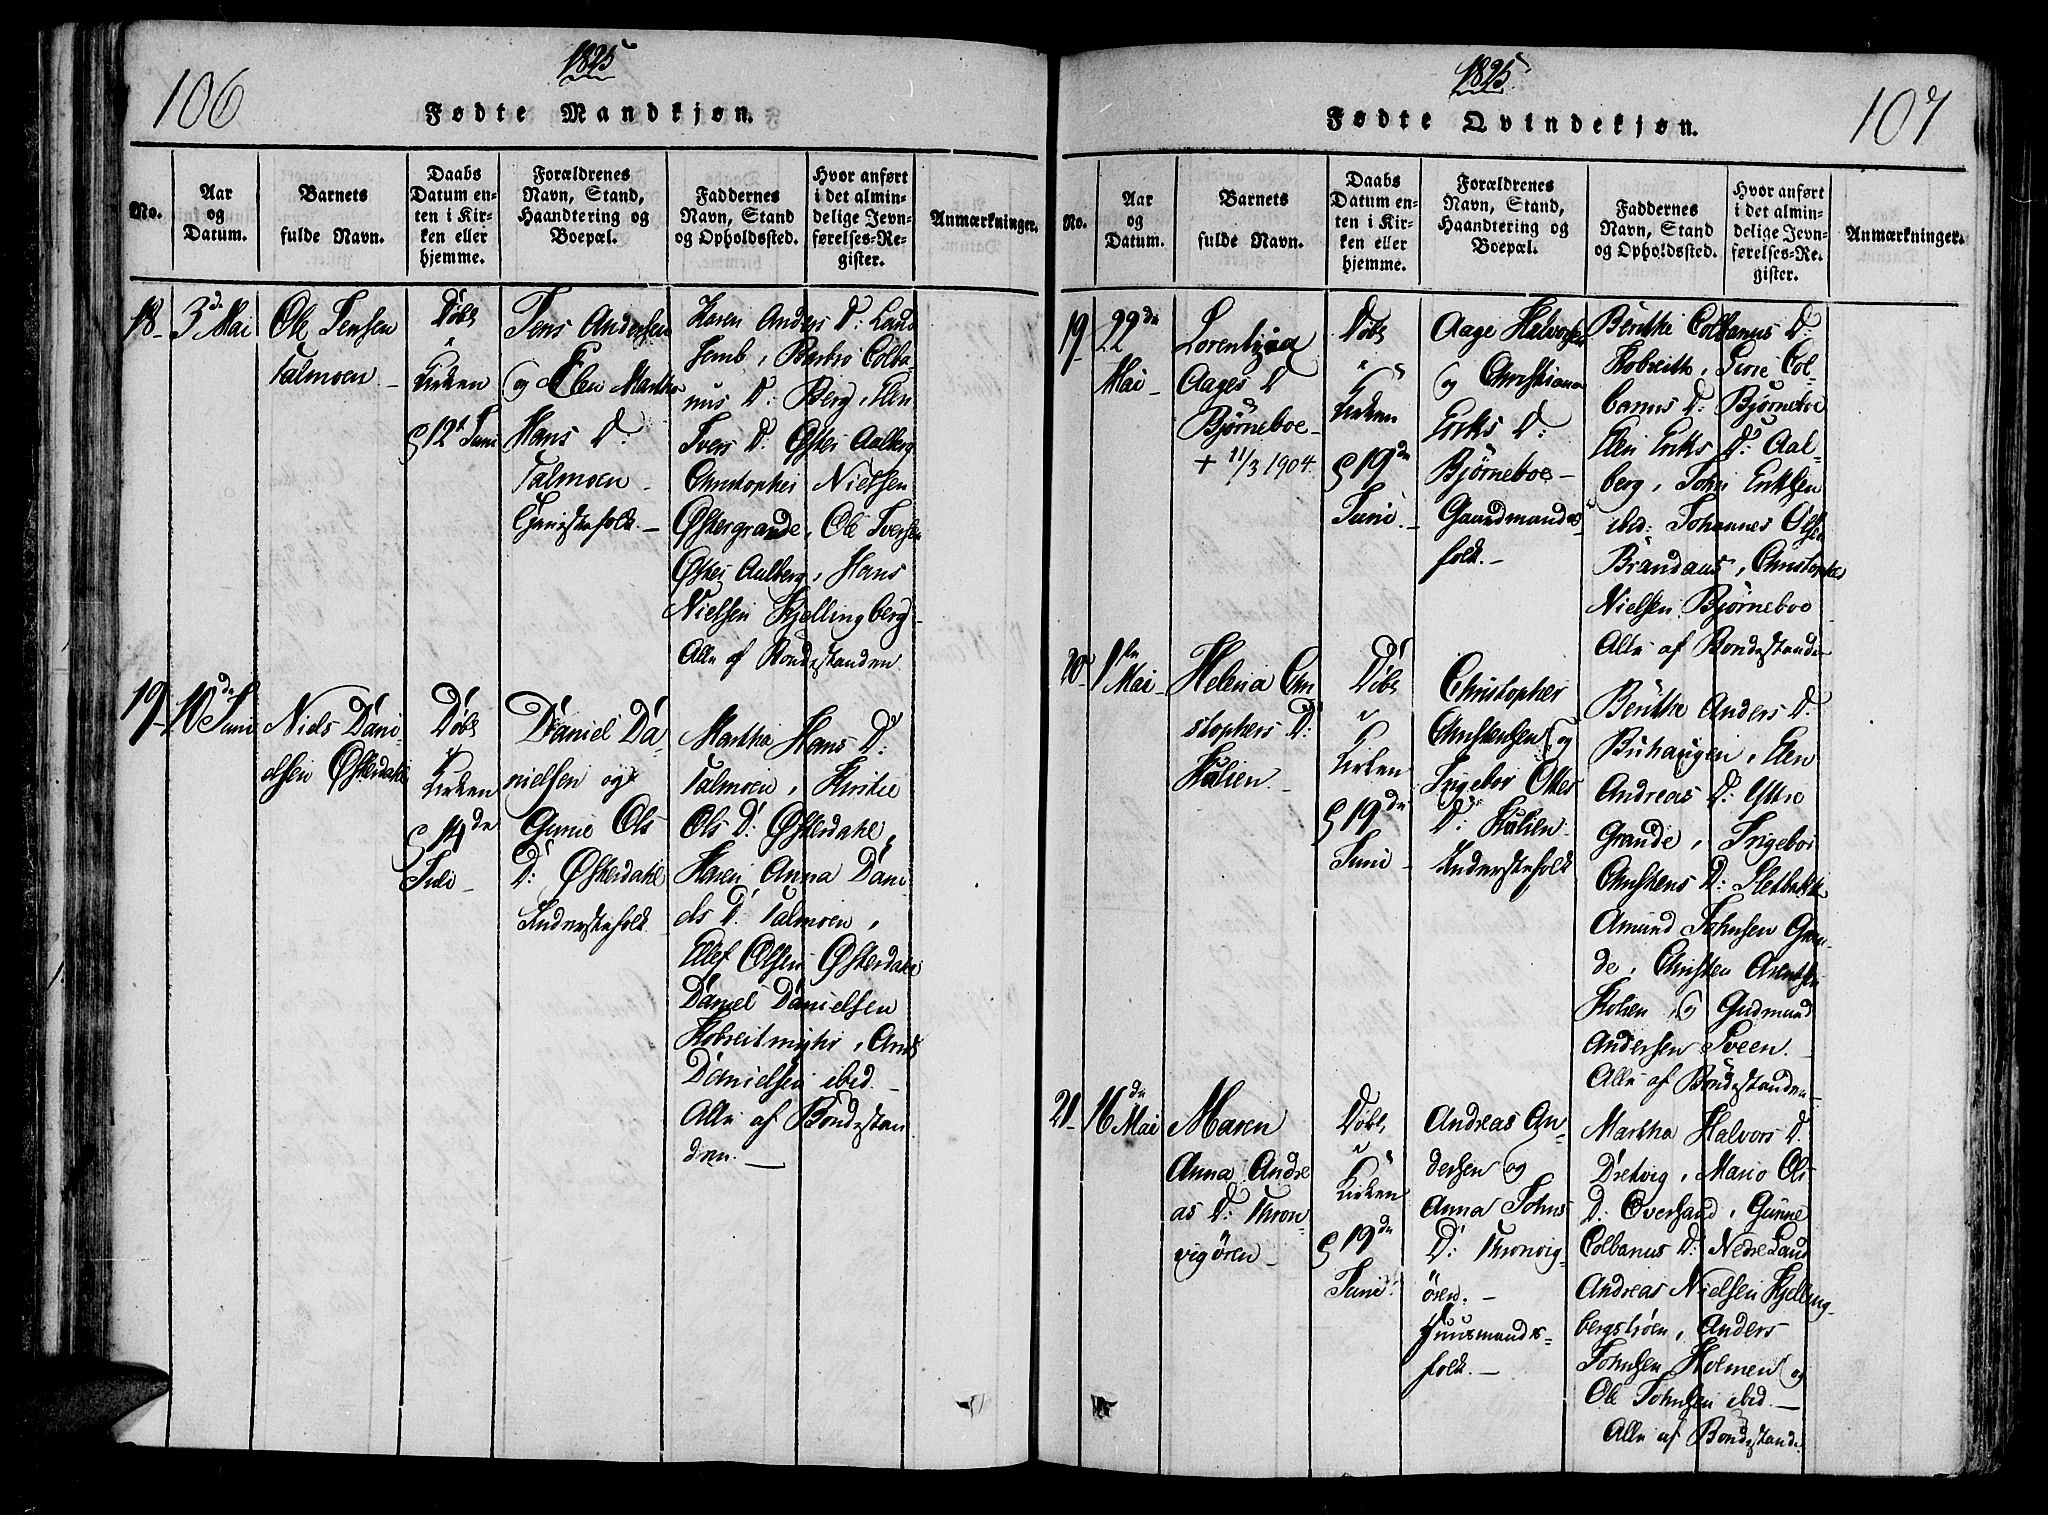 106
1825
Fødte Mandkjøn.
No.
Aar
og
Datum.
Barnets
fulde Navn.
Daabs
Datum en-
ten i Kir-
ken eller
hjemme.
Forældrenes
Navn, Stand,
Haandtering og
Boepæl.
Faddernes
Navn, Stand
og Opholdssted.
Hvor anført
i det almin-
delige Jevn-
førelses-Re-
gister.
Anmærkninger.
18-
3de Mai
Ole Jensen
Talmoen -
Døbt
i
Kirken
d 12te Juni
Jens Andersen
og Elen Martha
Hans D:
Talmoen -
Karen Anders D:
Jemb, Barbro Colba-
nus D: Berg, Elen
Ivers D: Øster Aalberg
Christopher Nielsen
Østergrande, Ole Iversen
Øster Aalberg, Hans
Nielsen Kjellingberg
Alle af Bondestanden
19-
10de Juni
Niels Dani-
elsen Østerdahl
Døbt
i
Kirken
d 14de
Juli -
Daniel Da-
nielsen og
Ols
D: Østerdahl
Inderstefolk
Martha Hans D:
Talmoen, Kirstie
Ols D: Østerdahl,
Karen Anna Dani
els D. Talmoen,
Ellef Olsen Østerdahl
Daniel Danielsen
Danielsen ibid -
Alle af Bondestan
den. -
107
1825
Fødte Qvindekjøn.
No.
Aar
og
Datum.
Barnets
fulde Navn.
Daabs
Datum en-
ten i Kir-
ken eller
hjemme.
Forældrenes
Navn, Stand,
Haandtering og
Boepæl.
Faddernes
Navn, Stand
og Opholdssted.
Hvor anført
i det almin-
delige Jevn-
førelses-Re-
gister.
Anmærkninger.
19-
22de
Mai -
Lorentzina
Aages D
Bjørneboe -
+ 11/3 1904.
Døbt
i
Kirken
d 19de
Juni. -
Aage Halvorsen
og Christiana
Eriks D:
Bjørneboe -
Gaardmands-
folk. -
Berithe Colbanus D:
Colbanus D: Bjørneboe
Elen Eriks D: Aal-
berg, John Eriksen
ibid: Johannes Olsen
Brandaus, Christopher
Nielsen Bjørneboe
Alle af Bondestanden
20-
1ste
Mai -
Helena Chri
stophers D:
Kulien. -
Døbt
i
Kirken
d 19de
Juni -
Christopher
Christensen og
Ingebor
D: Kulien -
Inderstefolk
Berithe Anders D.
Buhaugen, Elen
Andreas D: Yttre
Grande, Ingebor
Christens D:
Amund Johnsen Gran
de, Christen Arentsen
og Gudmund
Andersen Sveen. -
Alle af Bondestanden -
21-
16de
Mai
Maren
Anna Andre
as D: Thron-
vigøren -
Døbt
i
Kirken
d 19de
Juni.
Andreas An-
dersen og
Anna Johns
D: Thronvig-
øren. -
Huusmands-
folk. -
Martha Halvors D.
Dretvig, Maria Ols
D: Oversand, Gunne
Colbanus D: Nedre
Andreas Nielsen Kjelling-
bergstrøen, Anders
Johnsen Holmen og
Ole Johnsen ibid. -
Alle af Bondestanden